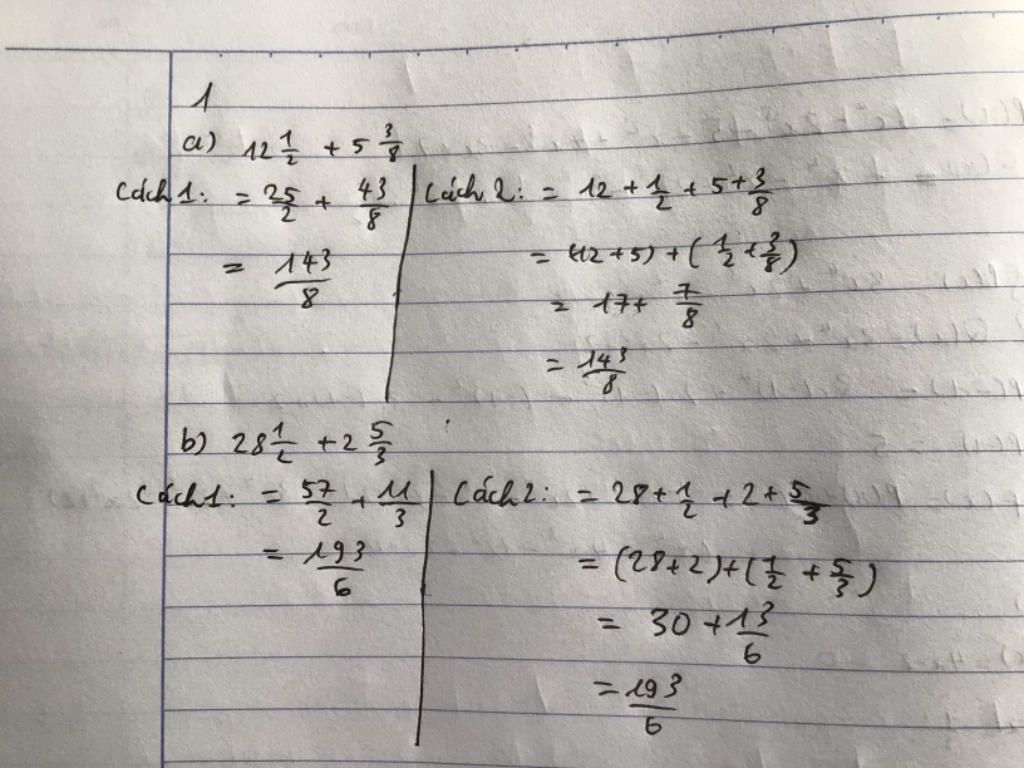 1
a) 12 1/2 + 5 3/8
Cách 1: = 25/2 + 43/8
= 143/8
Cách 2: = 12 + 1/2 + 5 + 3/8
= (12 + 5) + (1/2 + 3/8)
= 17 + 7/8
= 143/8
b) 28 1/2 + 2 5/3
Cách 1: = 57/2 + 11/3
= 193/6
Cách 2: = 28 + 1/2 + 2 + 5/3
= (28 + 2) + (1/2 + 5/3)
= 30 + 13/6
= 193/6